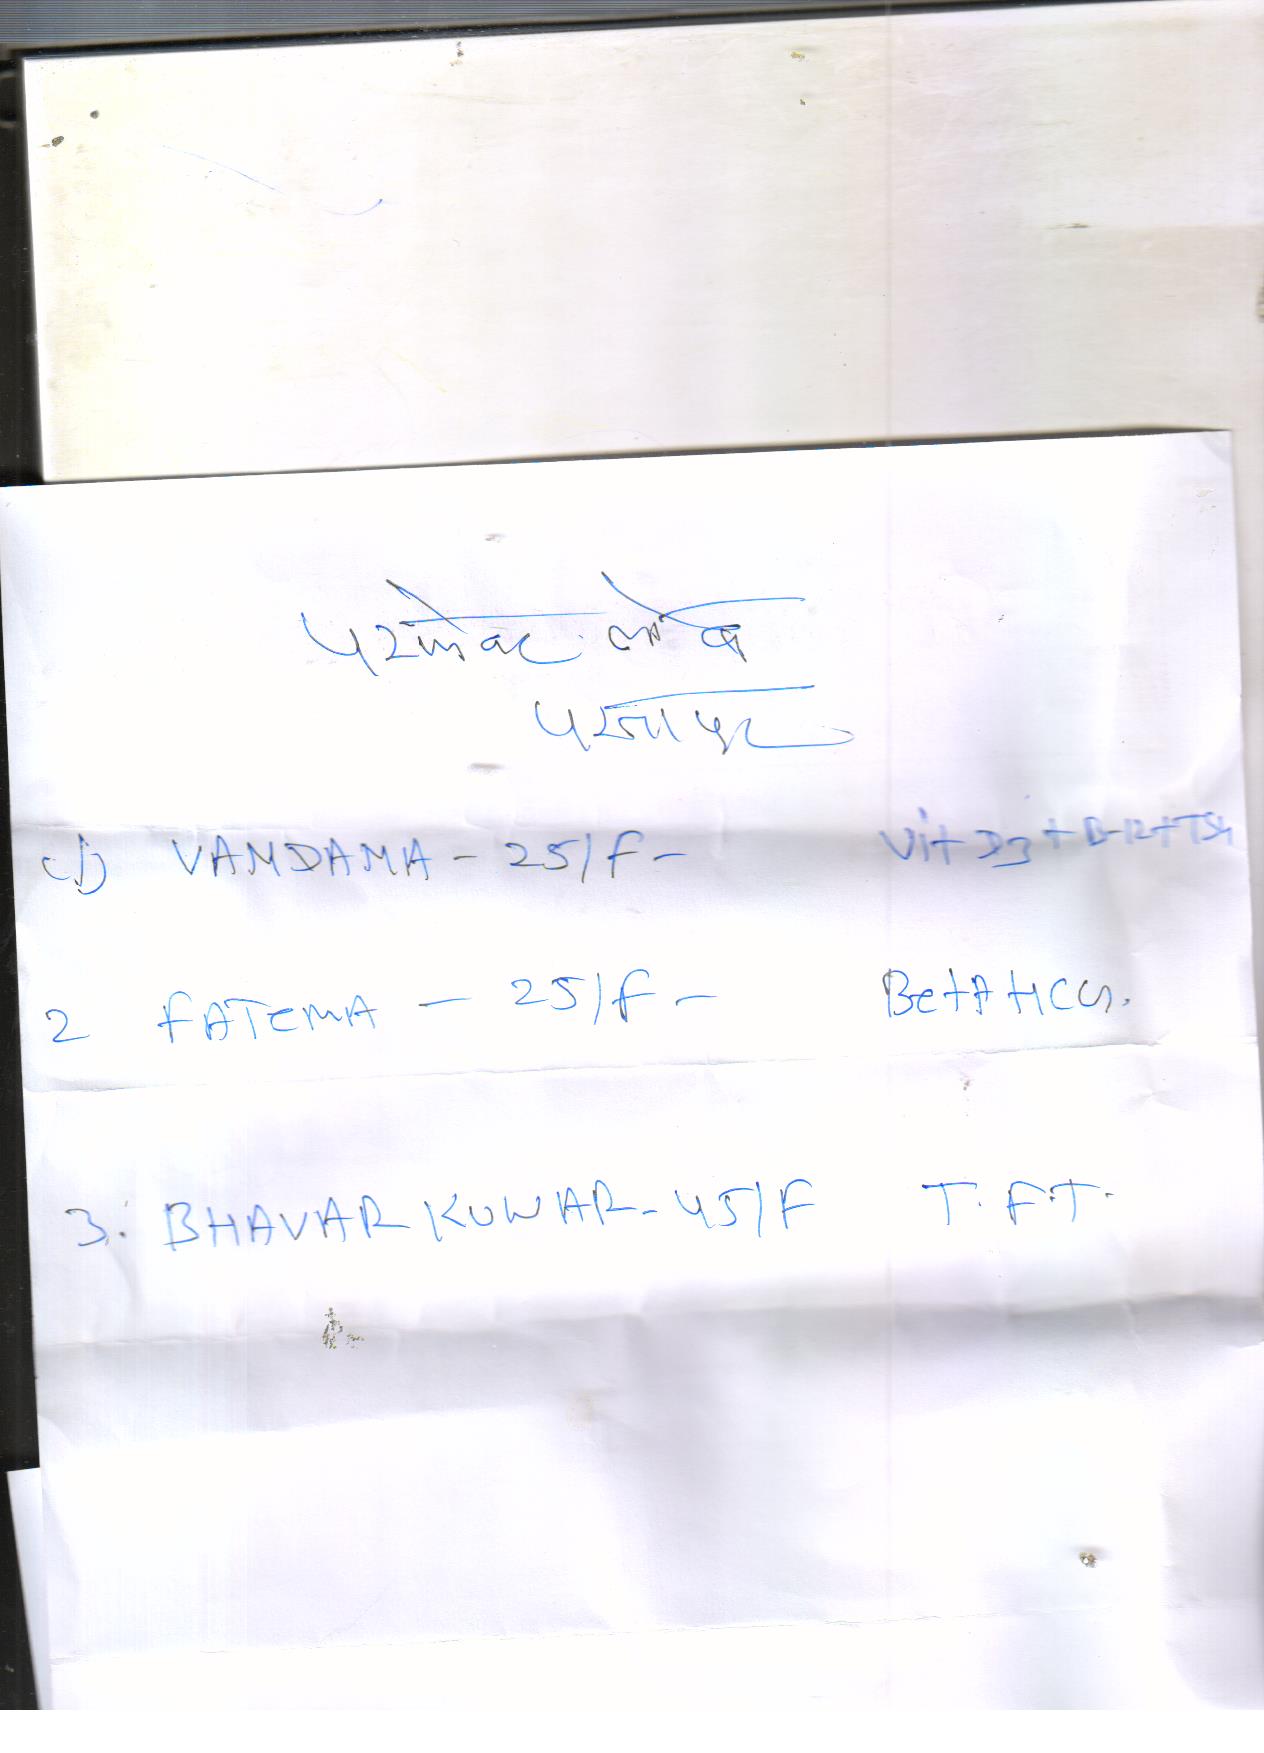 परमेश्वर लेब
परतापुर
(1) VANDANA - 25/F - Vit D3 + B-12 + TSH
2 FATEMA - 25/F - BetA HCG.
3. BHAVAR KUWAR - 45/F T.F.T.